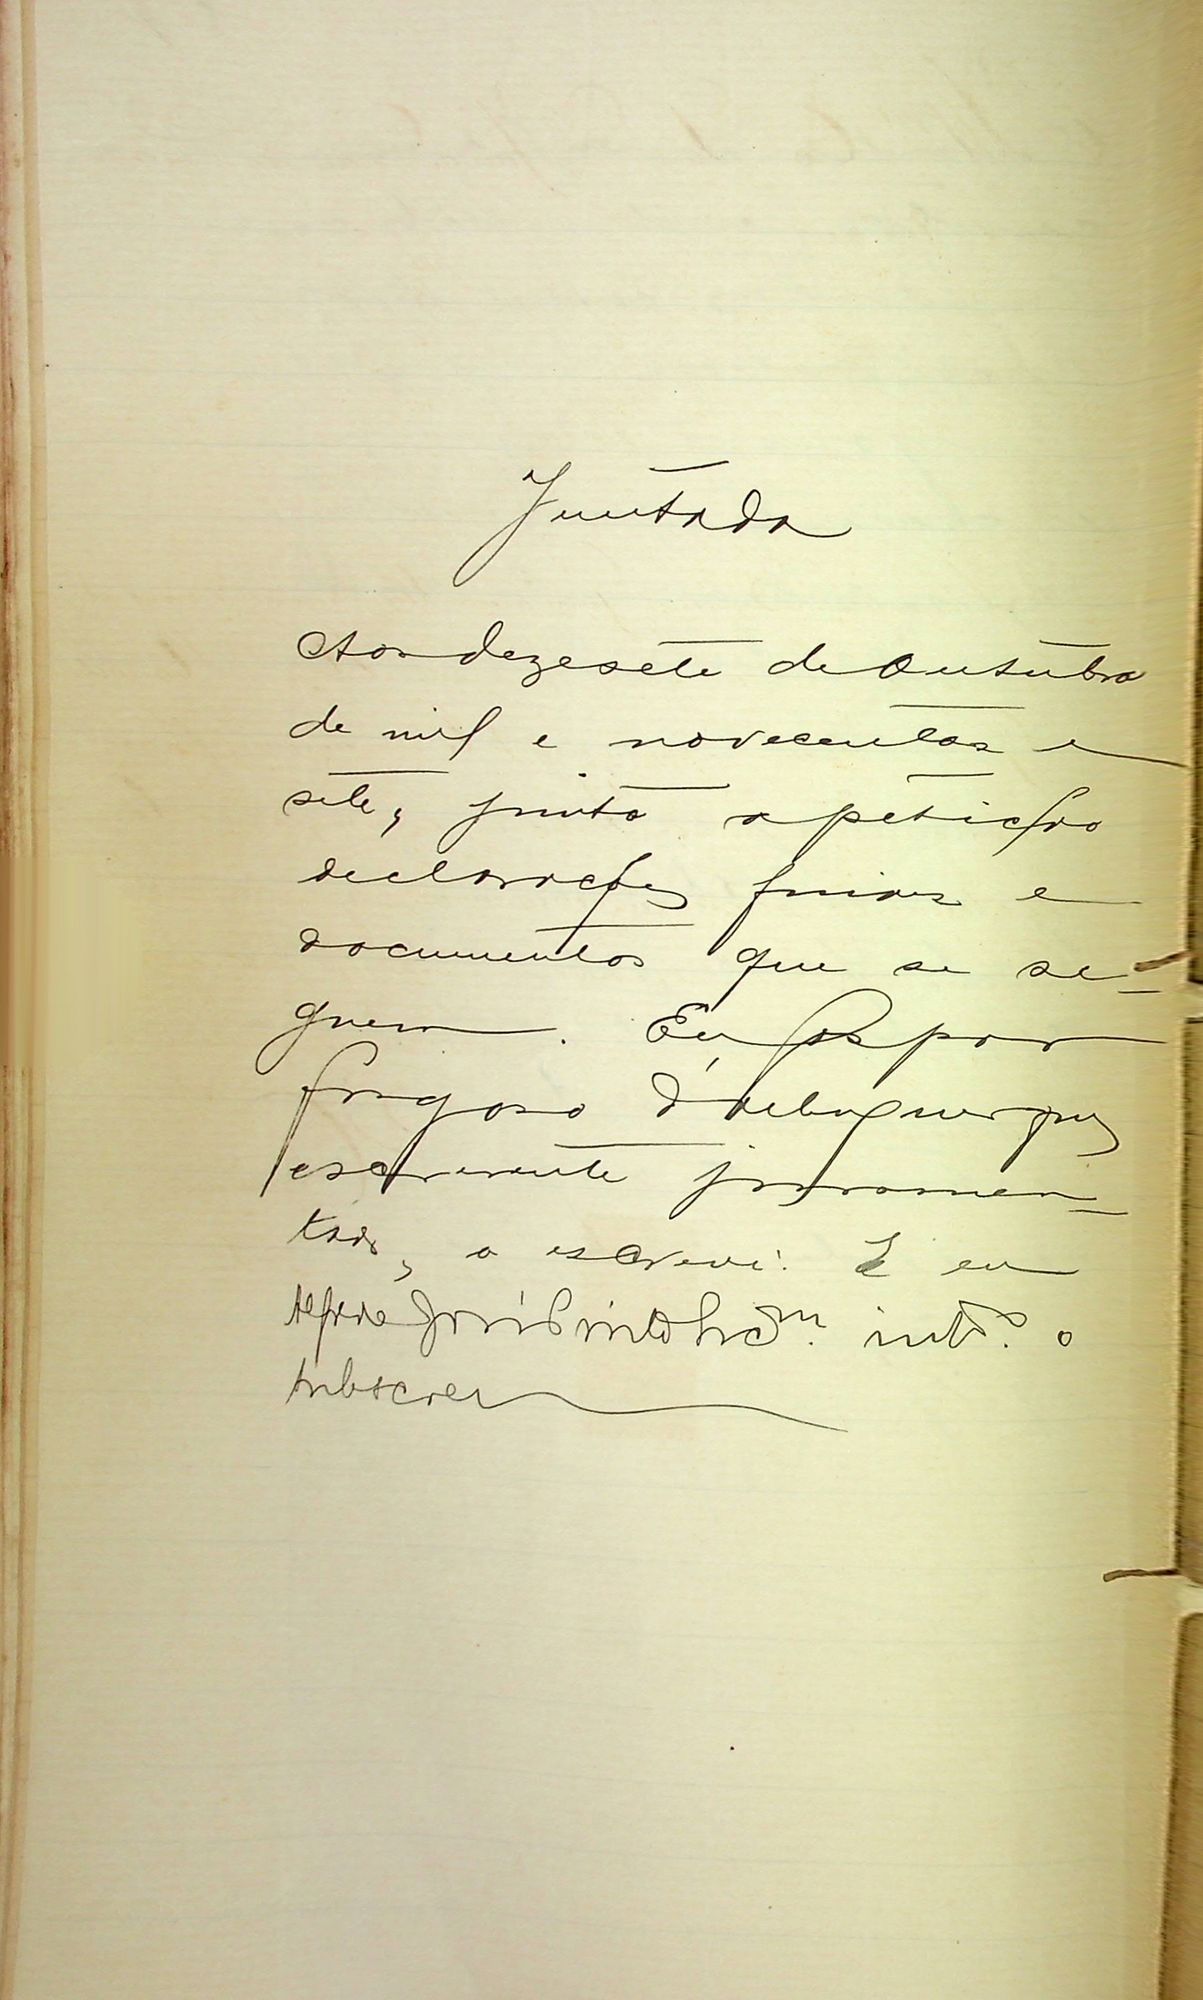 Juntada
Aos dezesete de Outubro
de mil e novecentos e
sete, junto a petição
declarações finaes e
documentos que se se-
guem. Eu Gaspar
Fragoso d'Albuquerque,
escrevente juramen-
tado, o escrevi. E eu
Alfredo José Pinto o
subscrevi